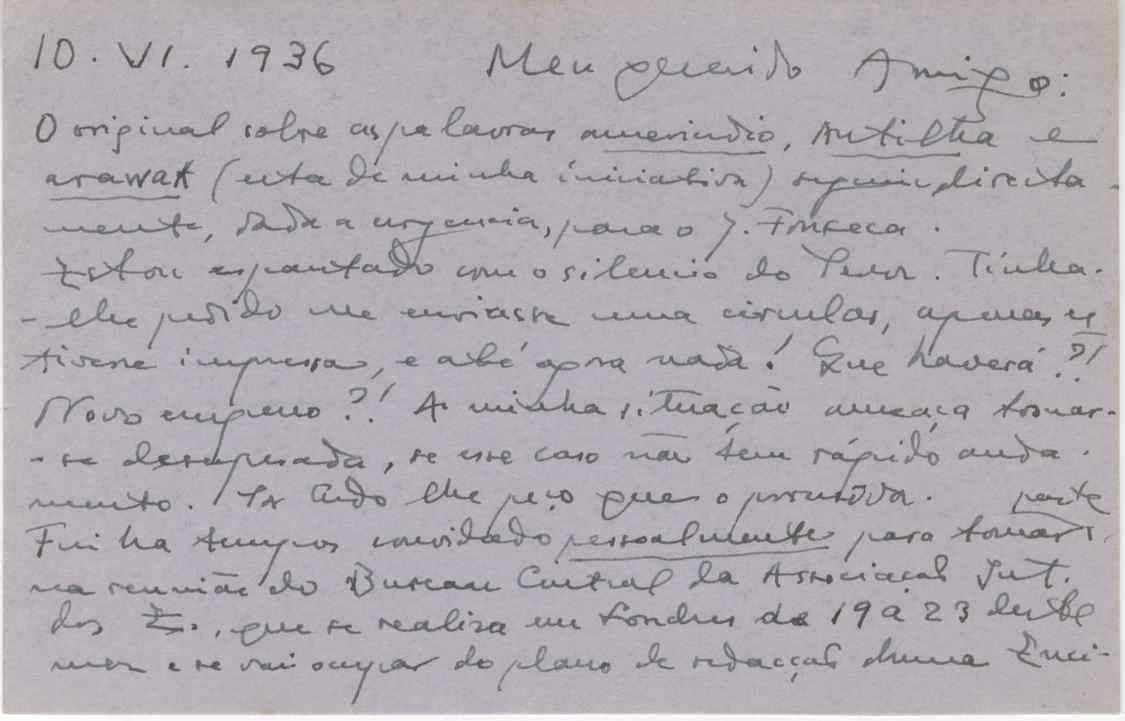 10. VI. 1936 Meu querido Amigo:
O original sobre as palavras amerindio, Antilha e
arawak (esta de minha iniciativa) seguiu directa-
mente, dada a urgencia, para o J. Fonseca.
Estou espantado com o silencio do. Tinha-
-lhe pedido me enviasse uma circular, apenas es
tivesse impressa, e até agora nada! Que haverá?!
Novo engano?! A minha situação ameaça tornar-
-se desesperada, se esse caso não tem rápido anda-
mento. lhe peço que o promova. parte
Fui ha tempos convidado pessoalmente para tomar
na reunião do Bureau Central da Associação Int.
dos E., que se realisa em Londres de 19 a 23 deste
mez e se vai ocupar do plano de redacção duma Enci-